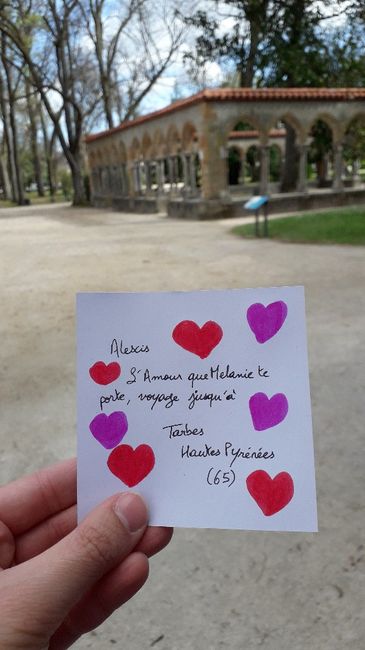 Alexis
L'Amour que Melanie te
porte, voyage jusqu'à
Tarbes
Hautes Pyrénées
(65)